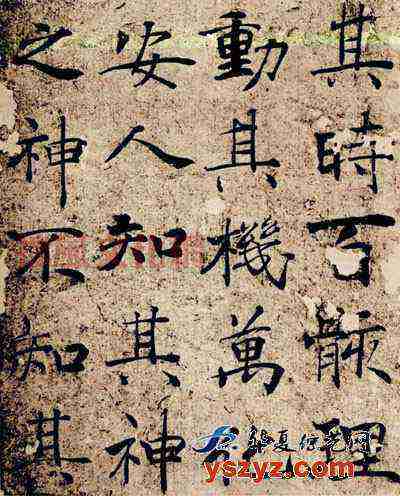 其時百骸理
動其機萬
安人知其神
之神不知其
yszyz.com